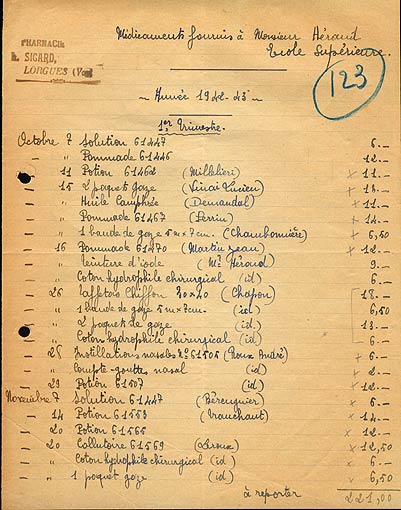 Médicaments fournis à Monsieur Héraud
Ecole Supérieure.
PHARMACIE
SICARD,
LORGUES (Var)
123
~ Année 1942-43 ~
1er Trimestre.
Octobre 7 Solution 61447 6.-
- " Pommade 61446 12.-
- 11 Potion 61462 (Millelieri) x 11.-
- 15 2 paquet gaze (Vinai Lucien) x 13.-
- " Huile Camphrée (Demandal) x 11.-
- " Pommade 61467 (Perrin) x 12.-
- " 1 bande de gaze 5m x 7cm. (Chambonnière) x 6,50
- 16 Pommade 61470 (Martin Jean) x 12.-
- " Teinture d'iode (Mr Héraud) 9.-
- " Coton hydrophile chirurgical (id) 6.-
- 26 Taffetas Chiffon 30x40 (Chapon) 18.-
- " 1 bande de gaze 5m x 7cm. (id) 6,50
- " 2 paquets de gaze (id.) 13.-
- " Coton hydrophile chirurgical (id) 6.-
- 28 Instillations nasales No 61505 (Roux André) x 6.-
- " Compte-gouttes nasal (id) x 2.-
- 29 Potion 61507 (id) x 12.-
Novembre 7 Solution 61447 (Bérenguier) x 6.-
- 14 Potion 61553 (Vrauchant) x 14.-
- 20 Potion 61565 x 12.-
- 20 Collutoire 61569 (Leroux) x 12,50
- " Coton hydrophile chirurgical (id) x 6.-
- " 1 paquet gaze (id) x 6,50
à reporter 221,00